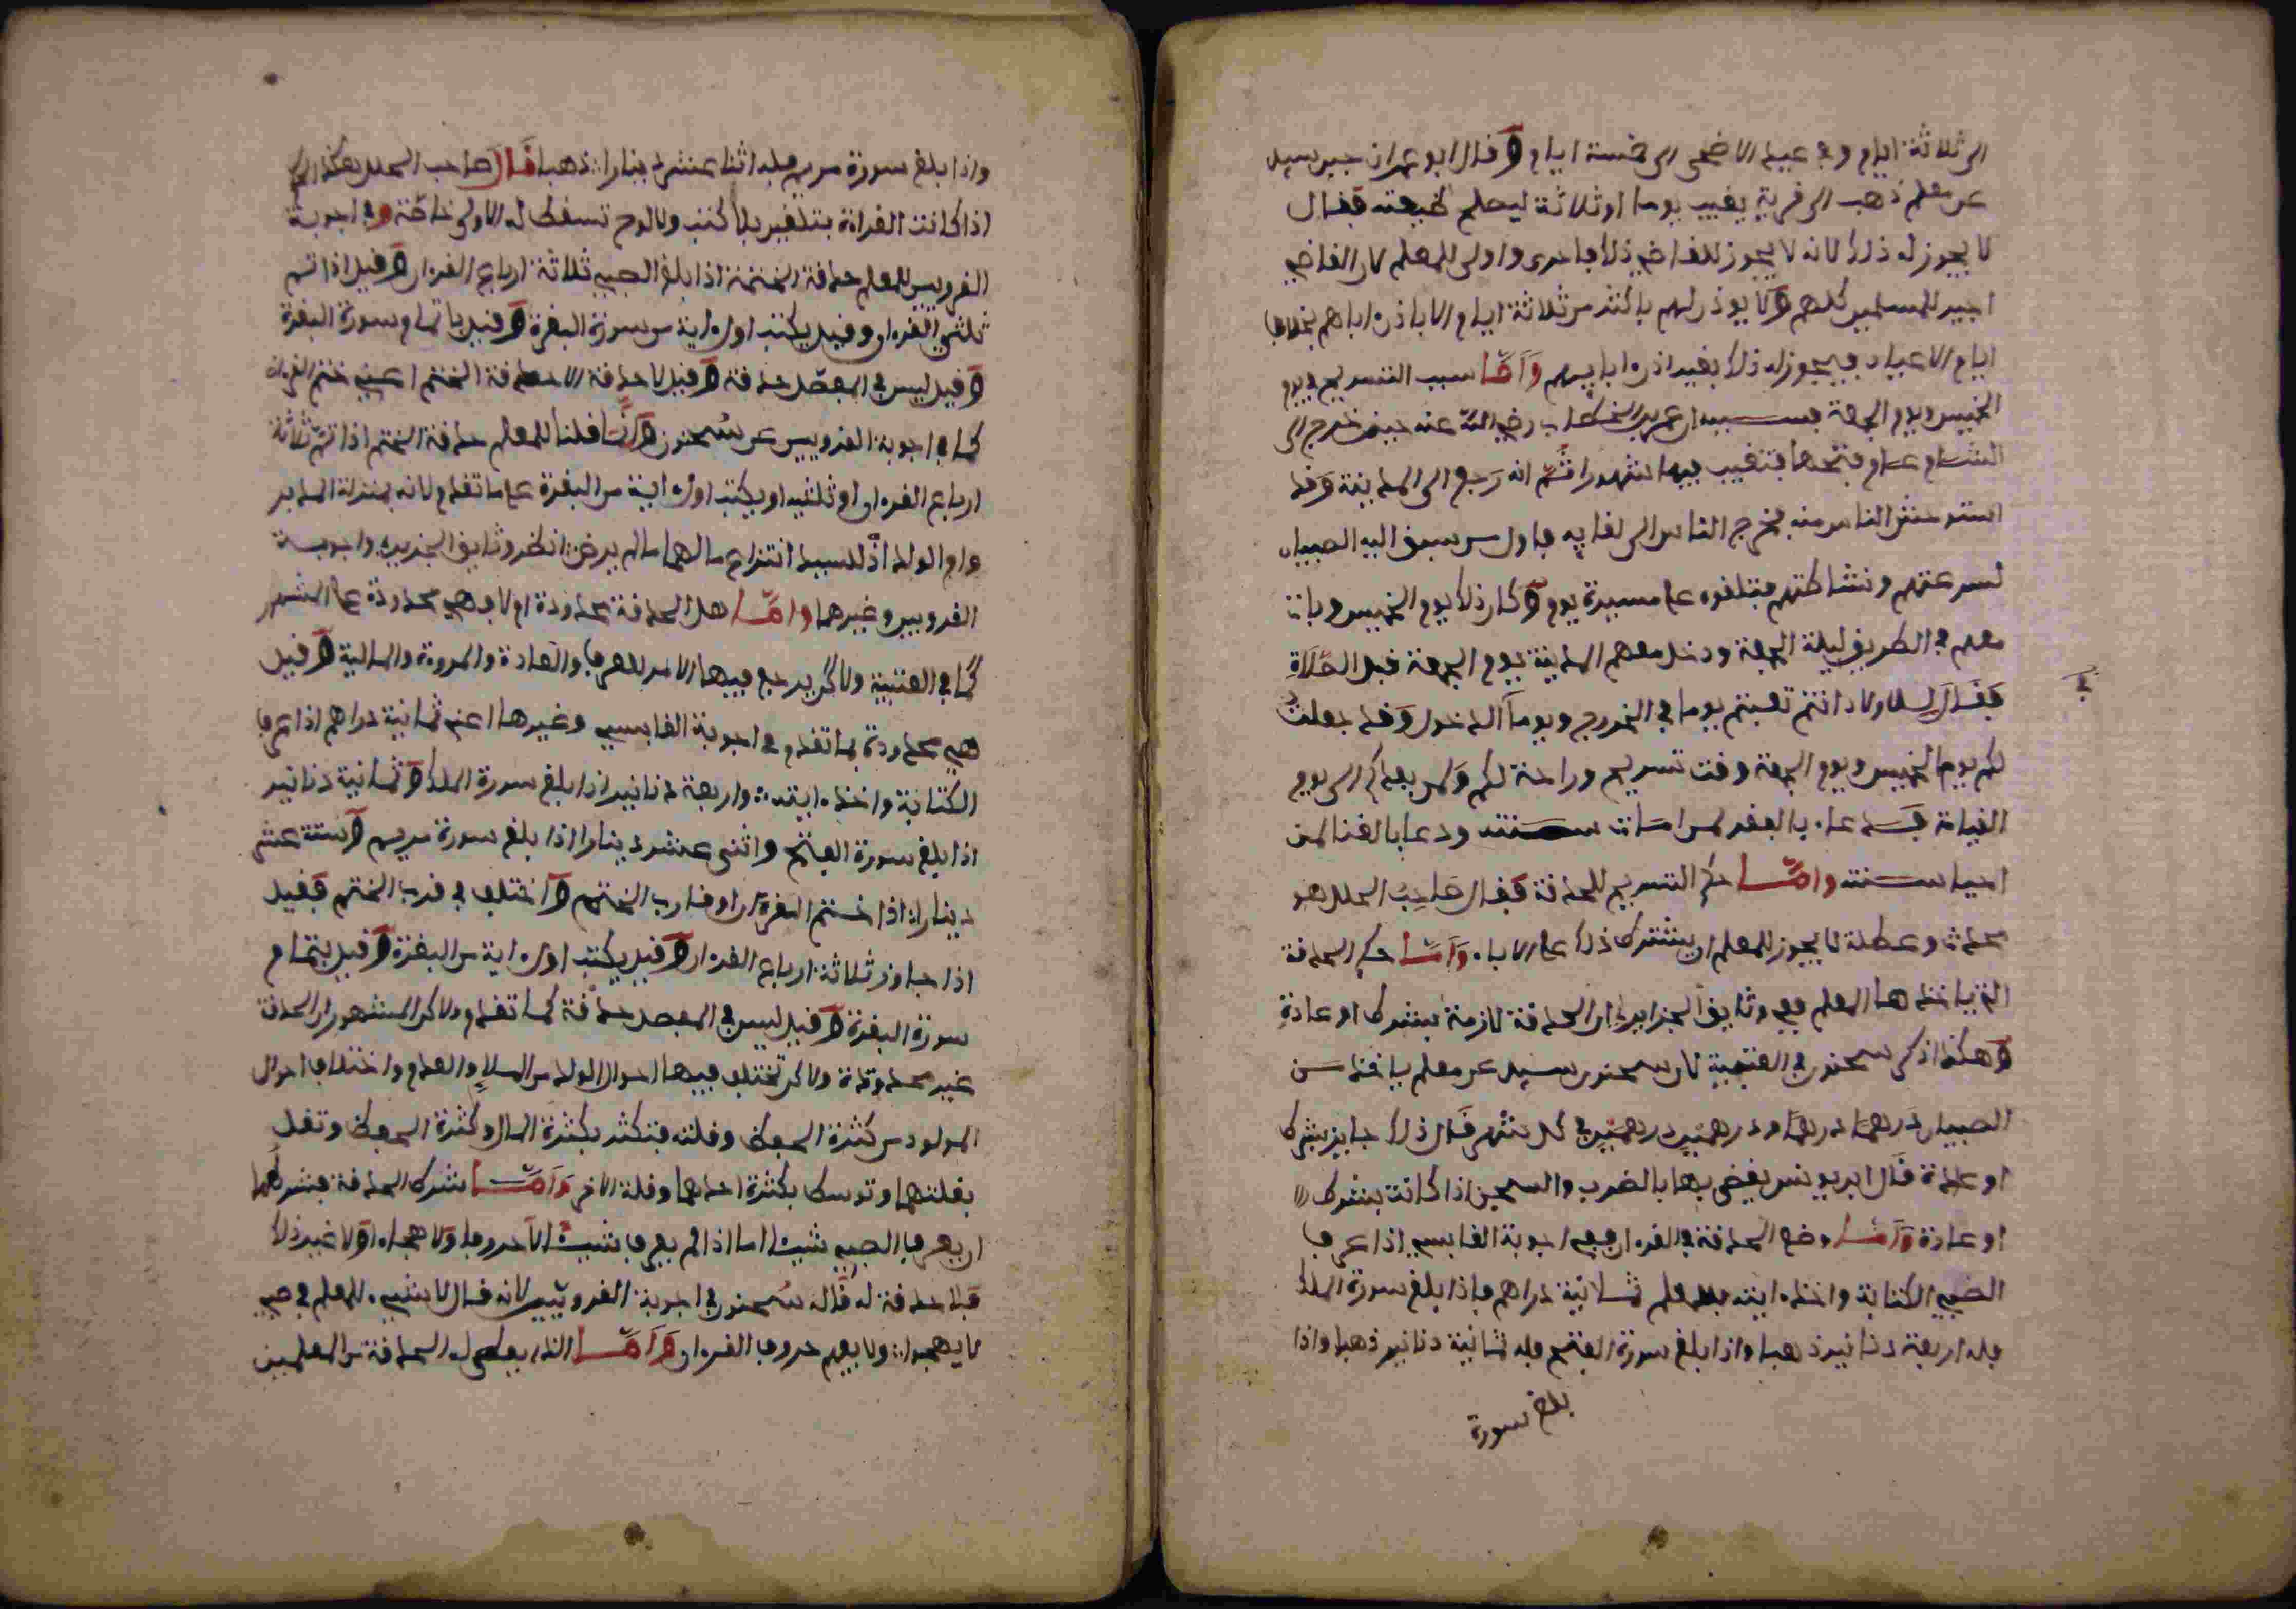 الى ثلاثة ايام وفي عيد الاضحى الى خمسة ايام وقال ابو عمران حين سيل
عن معلم ذهب الى قرية يغيب يوما او ثلاثة ليحكم ضيعته فقال
لا يجوز له ذلك لانه لا يجوز للقاضي ذلك فاحرى واولى للمعلم لان القاضي
اجير للمسلمين كلهم ولا يوذن لهم باكثر من ثلاثة ايام الا باذن اباهم بخلاف
ايام الاعياد فيجوز له ذلك بغير اذن ابايهم وَأَمَّا سبب التسريح في يوم
الخميس ويوم الجمعة فسببه ان عمر بن الخطاب رضي الله عنه حين خرج الى
الشام عام فتحها فتغيب فيها شهورا ثم انه رجع الى المدينة وقد
استوحش الناس منه فخرج الناس الى لقايه فاول من سبق اليه الصبيان
لسرعتهم ونشاطتهم فتلقوه على مسيرة يوم وكان ذلك يوم الخميس وبات
معهم في الطريق ليلة الجمعة ودخل معهم المدينة يوم الجمعة قبل الصلاة
فقال للاولاد انتم تعبتم يوما في الخروج ويوما الدخول وقد جعلت
لكم يوم الخميس ويوم الجمعة وقت تسريح وراحة لكم ولمن بعدكم الى يوم
القيامة فدعا بالفقر لمن امات سنته ودعا بالغنا لمن
احيا سنته وامّا حكم التسريح للحذقة فقال صاحب الحلل هو
محدث وعطلة لا يجوز للمعلم ان يشترط ذلك على الابا وَأَمَّا حكم الحذقة
التي ياخذها المعلم ففي وثايق الجزايري ان الحذقة لازمة بشرط او عادة
وهكذا ذكر سحنون في العتبية لان سحنون سيل عن معلم ياخذ من
الصبيان درهما درهما ودرهمين درهمين في كل شهر قال ذلك جايز بشرط
او عادة قال ابن يونس يقضى بها بالضرب والسجن اذا كانت بشرط
او عادة وَأَمَّا وضع الحذقة في القرءان ففي اجوبة القابسي اذا عرف
الصبي الكتابة واخذ ايته فللمعلم ثمانية دراهم فاذا بلغ سورة الملك
فله اربعة دنانير ذهبا واذا بلغ سورة الفتح فله ثمانية دنانير ذهبا واذا
بلغ سورة
واذا بلغ سورة مريم فله اثنا عشر دينارا ذهبا قال صاحب الحلل هكذا
اذا كانت القراءة بتلقين بلا كتب ولا لوح تسقط له الاولى خاصّة وفي اجوبة
القرويين للمعلم حذقة الختمة اذا بلغ الصبي ثلاثة ارباع القرءان وقيل اذا تم
ثلثي القرءان وقيل يكتب اول ءاية من سورة البقرة وقيل باتمام سورة البقرة
وقيل ليس في المفصّل حذقة وقيل لا حذقة الا حذقة الختم اعني ختم القرءان
كما في اجوبة القرويين عن سُحنون وانَّما قلنا للمعلم حذقة الختم اذا تمّ ثلاثة
ارباع القرءان او ثلثيه او يكتب اول ءاية من البقرة على ما تقدم لانه بمنزلة المدبر
وام الولد اذ للسيد انتزاع مالهما ما لم يمرض انظر وثايق الجزيري واجوبة
القرويين وغيرهما وامّا هل الحذقة محدودة ام لا فهي محدودة على المشهور
كما في العتبية ولاكن يرجع فيها الامر للعرف والعادة والمروة والمالية وقيل
هي محدودة بما تقدم في اجوبة القابسي وغيرها اعني ثمانية دراهم اذا عرف
الكتابة واخذ ايته واربعة دنانير اذا بلغ سورة الملك وثمانية دنانير
اذا بلغ سورة الفتح واثنى عشر دينارا اذا بلغ سورة مريم وستة عشر
دينارا اذا ختم القرءان او قارب الختم واختلف في قرب الختم فقيل
اذا جاوز ثلاثة ارباع القرءان وقيل يكتب اول ءاية من البقرة وقيل بتمام
سورة البقرة وقيل ليس في المفصل حذقة كما تقدم ولاكن المشهور ان الحذقة
غير محدودة ولاكن تختلف فيها احوال الولد من الملاء والعدم واختلاف احوال
المولود من كثرة الحفظ وقلته فتكثر بكثرة المال وكثرة الحفظ وتقل
بقلتهما وتوسط بكثرة احدهما وقلة الاخر وَأَمَّا شرط الحذقة فشرطها
ان يعرف الصبي شيئا اما اذا لم يعرف شيئا لا حروفا ولا هجاء ولا غير ذلك
فلا حذقة له قاله سُحنون في اجوبة القرويين لانه قال لا شيء للمعلم في صبي
لا يهجوا ولا يفهم حروف القرءان وَأَمَّا الذي يعطى له الحذقة من المعلمين